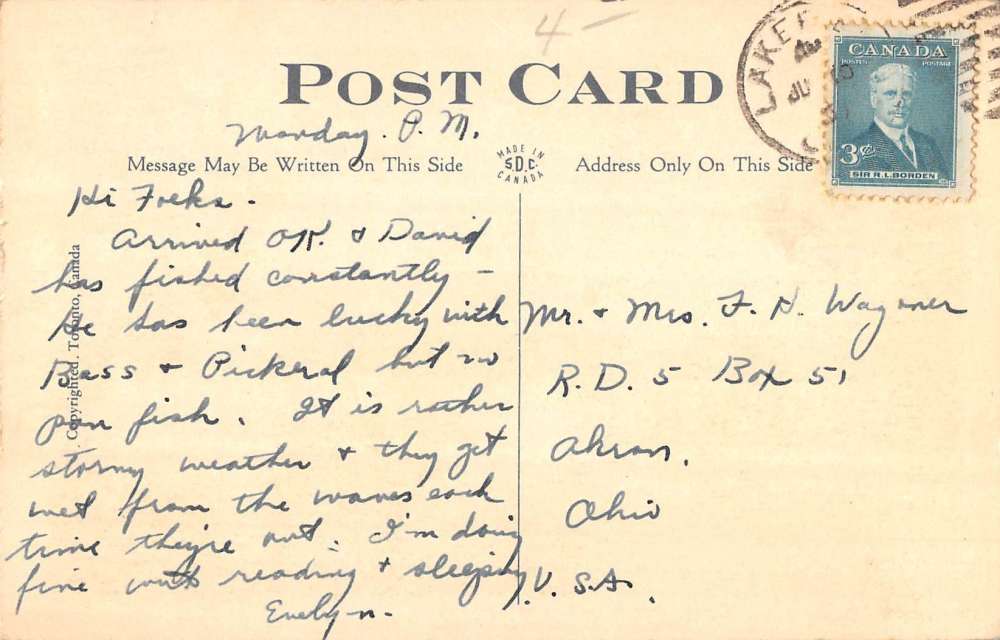 4-
POST CARD
LAKE
JU
CANADA
POSTES POSTAGE
3¢
SIR R.L. BORDEN
Monday. P.M.
Message May Be Written On This Side
MADE IN
S.D.C.
CANADA
Address Only On This Side
Hi Folks -
Arrived OK. & David
has fished constantly -
He has been lucky with
Bass & Pickeral but no
pan fish. It is rather
stormy weather & they get
wet from the waves each
time they're out. I'm doing
fine with reading & sleeping.
Evelyn-
Copyrighted. Toronto, Canada
Mr. & Mrs. F. N. Wagoner
R.D. 5 Box 51
Akron,
Ohio
U.S.A.